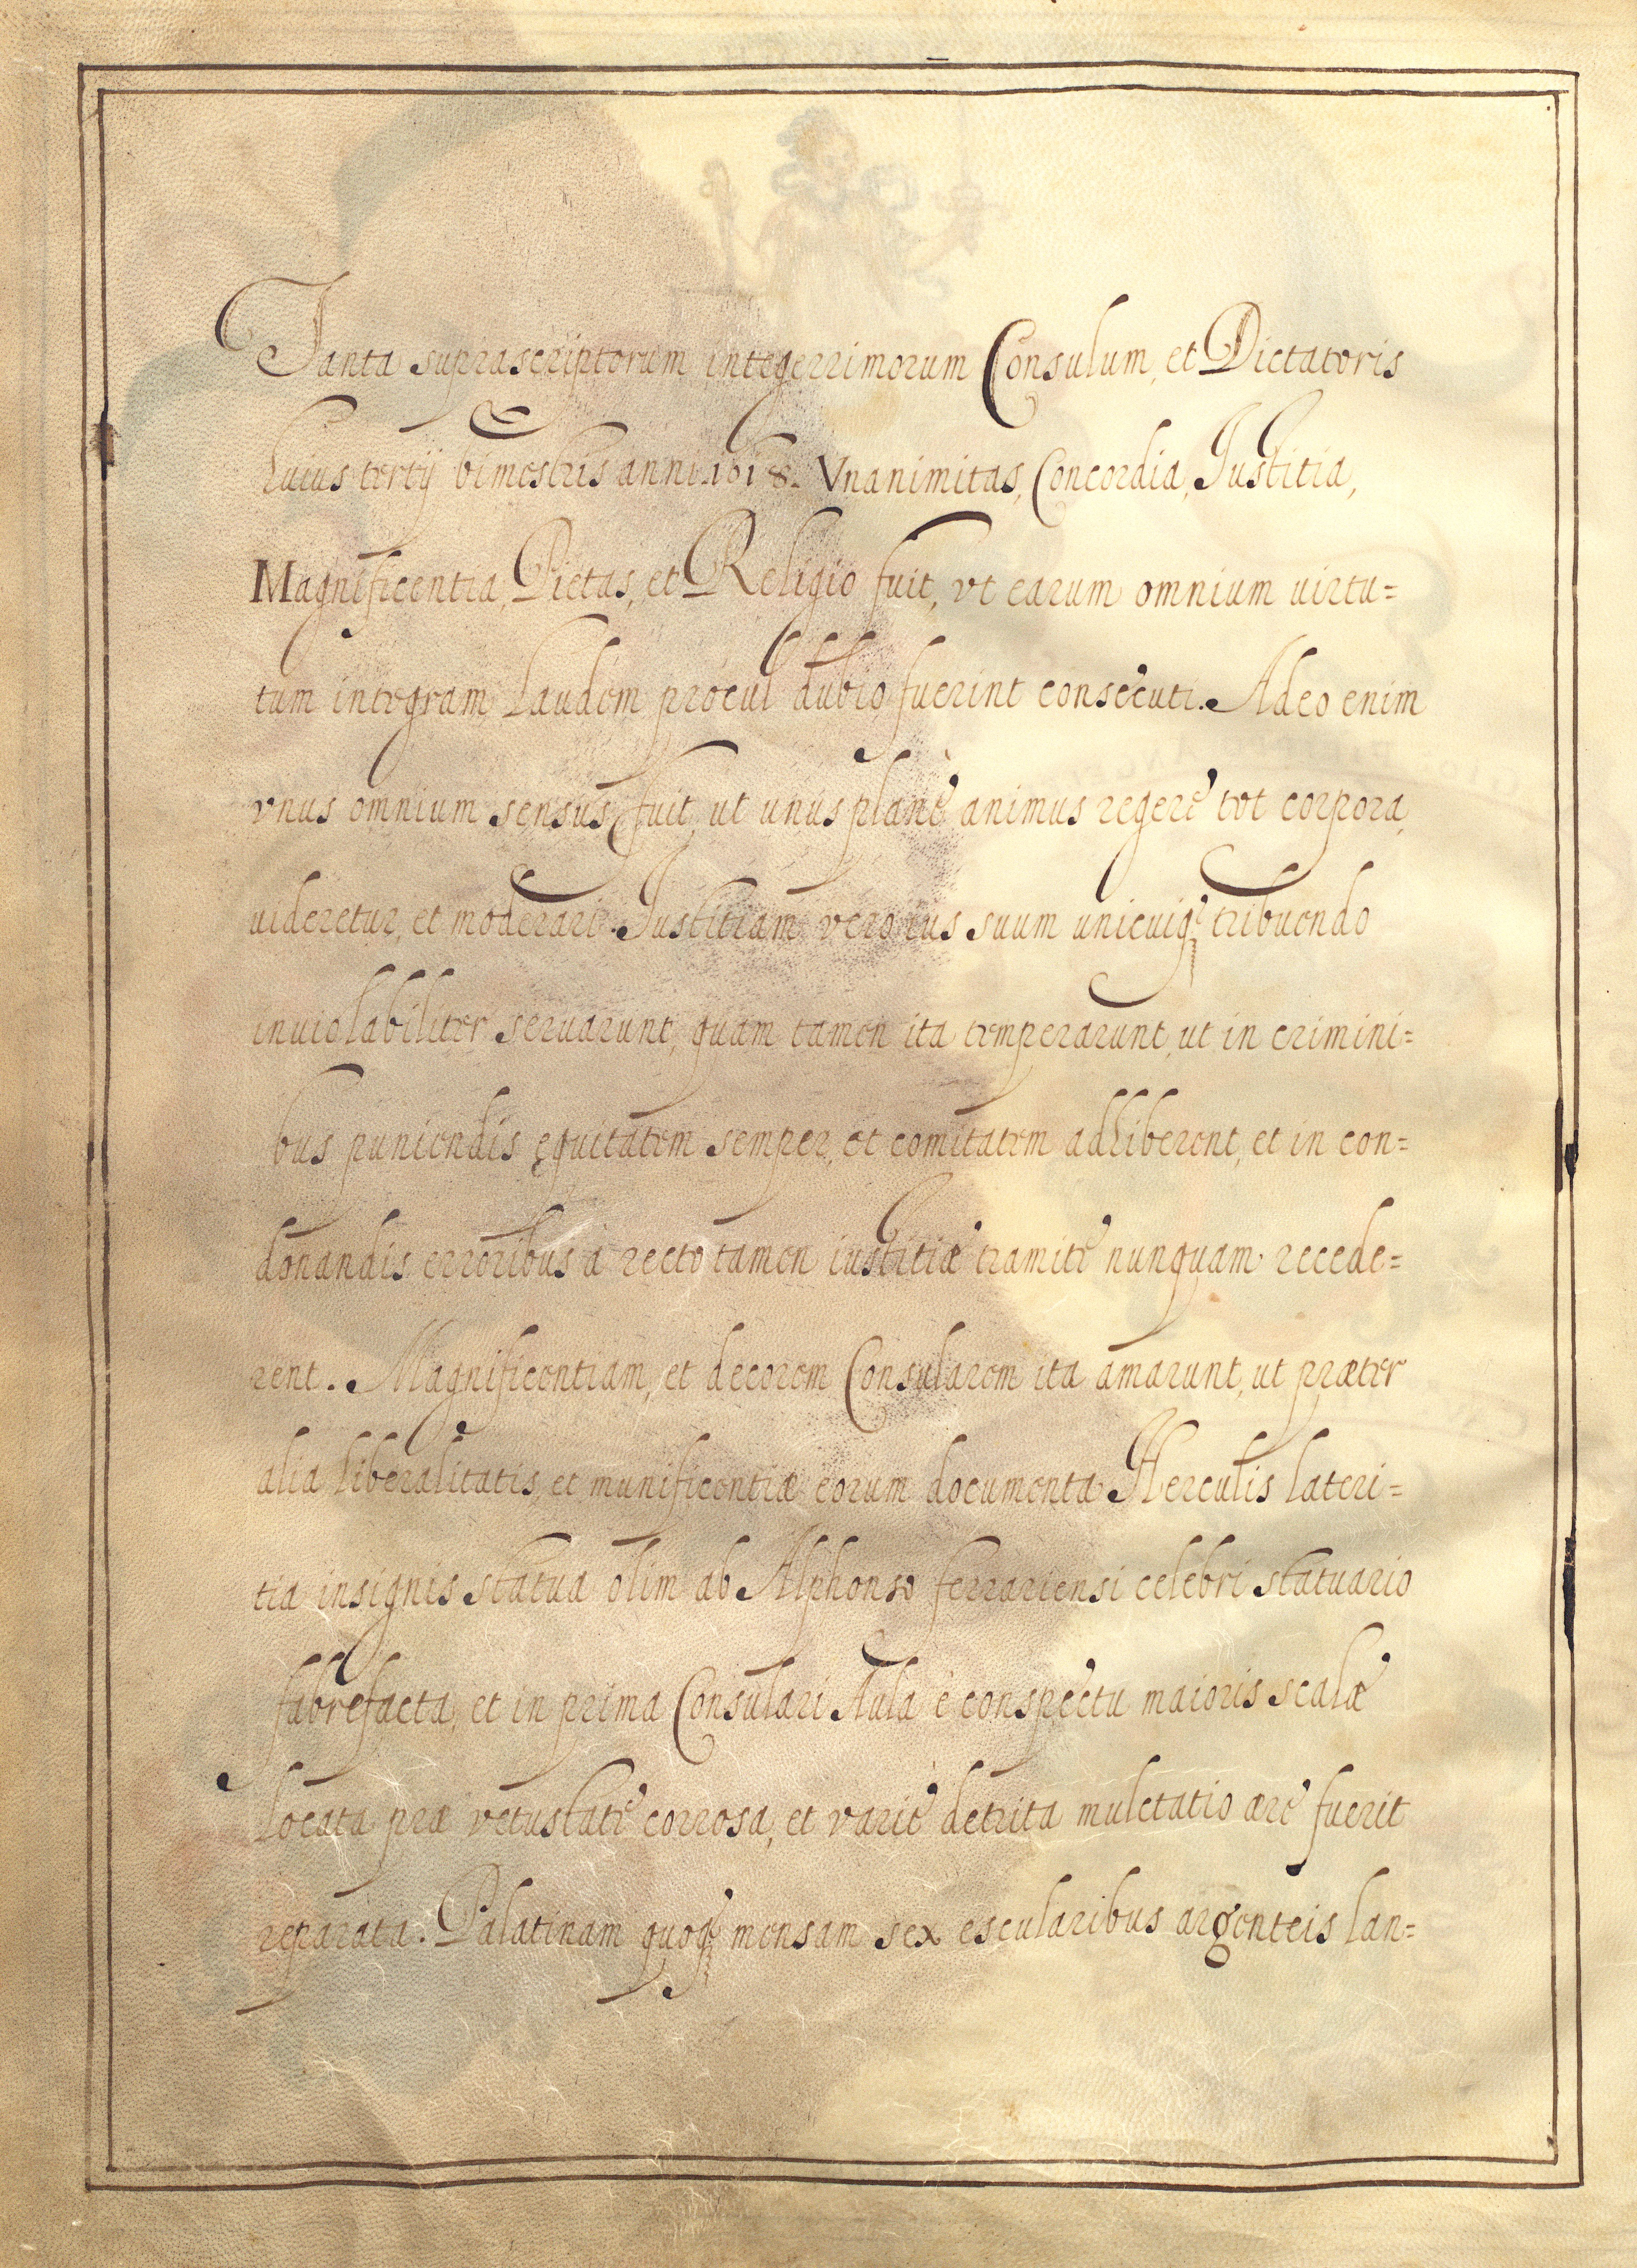 Tanta suprascriptorum integerrimorum Consulum, et Dictatoris
huius tertij bimestris anni 1618. Vnanimitas, Concordia, Iustitia,
Magnificentia, Pietas, et Religio fuit, vt earum omnium uirtu=
tum integram laudem procul dubio fuerint consecuti. Adeo enim
vnus omnium sensus fuit, ut unus planè animus regere tot corpora,
uideretur, et moderari. Iustitiam vero ius suum unicuiq; tribuendo
inuiolabiliter seruarunt, quam tamen ita temperarunt, ut in crimini=
bus puniendis ęquitatem semper, et comitatem adhiberent, et in con=
donandis erroribus à recto tamen iustitiæ tramite nunquam recede=
rent. Magnificentiam, et decorem Consularem ita amarunt, ut præter
alia liberalitatis, et munificentiæ eorum documenta Herculis lateri=
tia insignis statua olim ab Alphonso ferrariensi celebri statuario
fabrefacta, et in prima Consulari Aula è conspectu maioris scalæ
locata præ vetustate corrosa, et variè detrita mulctatio ære fuerit
reparata. Palatinam quoq; mensam sex escularibus argenteis lan=